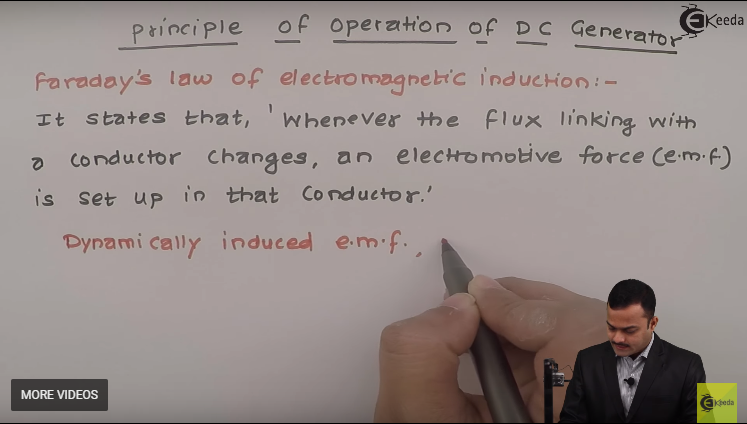 Principle of Operation of DC Generator
Ekeeda
Faraday's law of electromagnetic induction:-
It states that, 'Whenever the flux linking with
a conductor changes, an electromotive force (e.m.f.)
is set up in that conductor.'
Dynamically induced e.m.f.,
MORE VIDEOS
Ekeeda